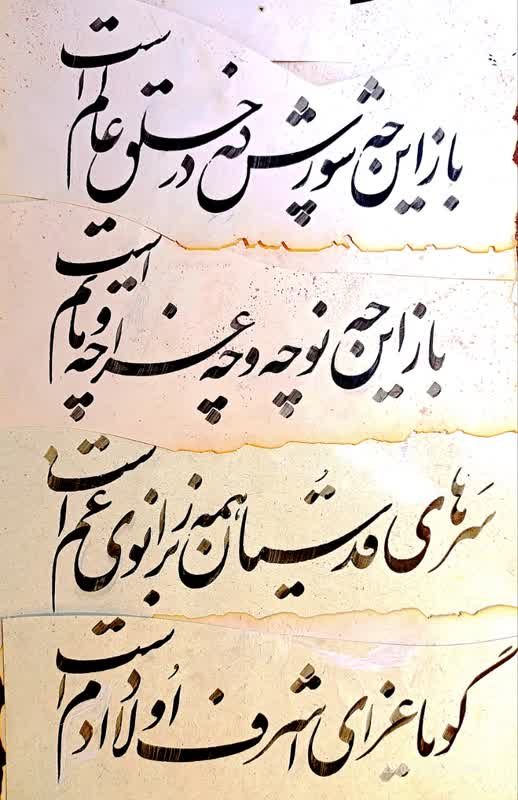 باز این چه شورش که در خلق عالم است
باز این چه نوحه و چه عزا و چه ماتم است
سَرهای قدسیان همه بر زانوی غم است
گویا عزای اشرف اُولاد آدم است